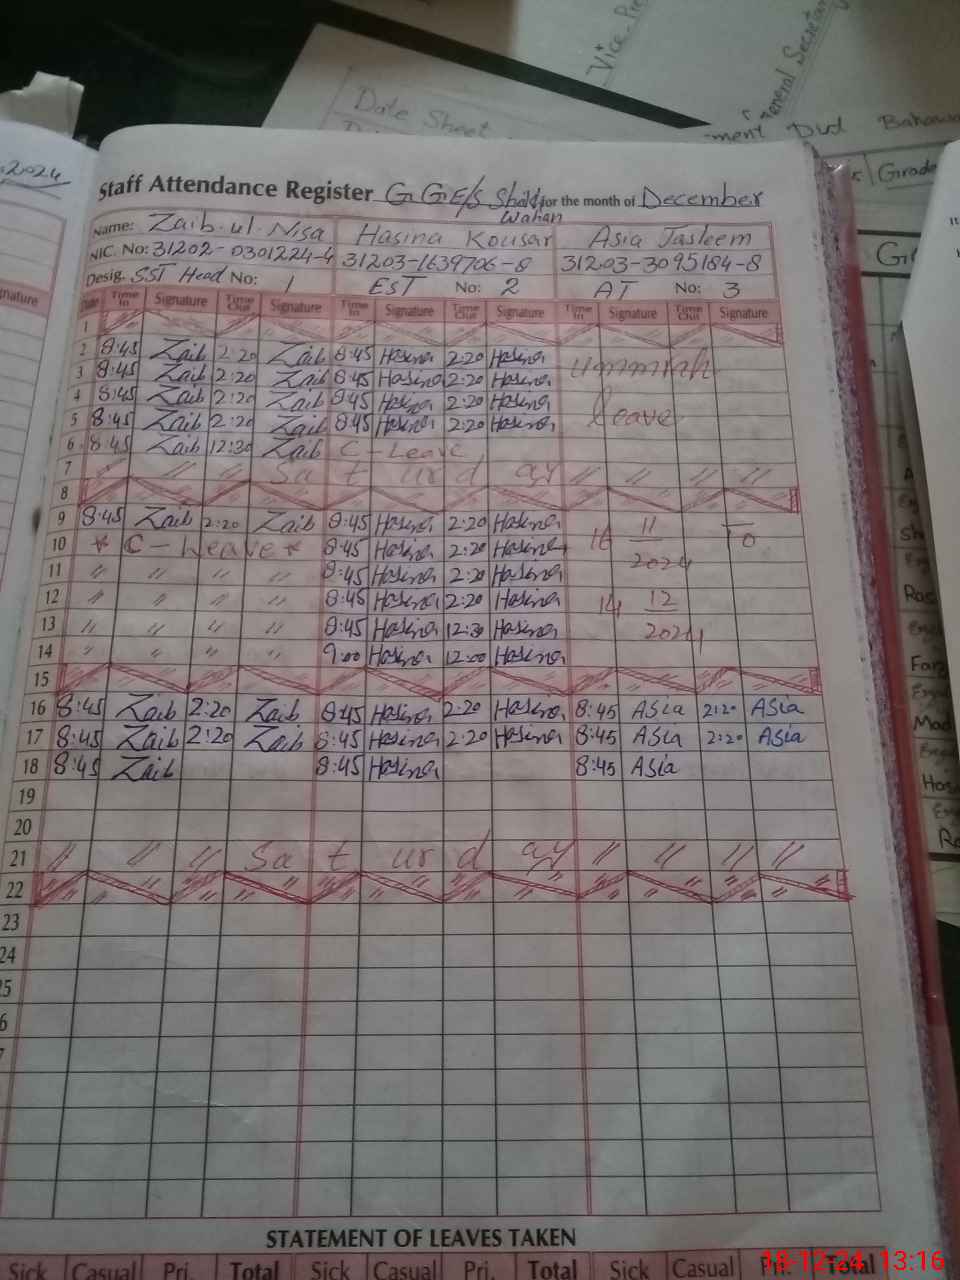 Vice Pre
General Secretar
Date Sheet
ment Dvd Bahawa
2024
Grade
Staff Attendance Register G GE/S Shah for the month of December
Wahan
Name: Zaib-ul-Nisa Hasina Kousar Asia Tasleem
NIC. No: 31202-0301224-4 31203-1639706-8 31203-3095184-8
Desig. SST Head No: 1 EST No: 2 AT No: 3
nature Date Time In Signature Time Out Signature Time In Signature Time Out Signature Time In Signature Time Out Signature
1
2 8:45 Zaib 2:20 Zaib 8:45 Hasina 2:20 Hasina Ummrah
3 8:45 Zaib 2:20 Zaib 8:45 Hasina 2:20 Hasina
4 8:45 Zaib 2:20 Zaib 8:45 Hasina 2:20 Hasina leave
5 8:45 Zaib 2:20 Zaib 8:45 Hasina 2:20 Hasina
6 8:45 Zaib 12:30 Zaib C-Leave
7 " " " Sa t ur d ay " " " "
8
9 8:45 Zaib 2:20 Zaib 8:45 Hasina 2:20 Hasina 16 11 To
10 * C-Leave * 8:45 Hasina 2:20 Hasina 2024
11 " " " " 8:45 Hasina 2:20 Hasina
12 " " " " 8:45 Hasina 2:20 Hasina 14 12
13 " " " " 8:45 Hasina 12:30 Hasina 2024
14 " " " " 9:00 Hasina 12:00 Hasina
15
16 8:45 Zaib 2:20 Zaib 8:45 Hasina 2:20 Hasina 8:45 Asia 2:20 Asia
17 8:45 Zaib 2:20 Zaib 8:45 Hasina 2:20 Hasina 8:45 Asia 2:20 Asia
18 8:45 Zaib 8:45 Hasina 8:45 Asia
19
20
21 " " " Sa t ur d ay " " " "
22
23
24
5
6
7
STATEMENT OF LEAVES TAKEN
Sick Casual Pri. Total Sick Casual Pri. Total Sick Casual Pri. Total
18-12-24 13:16